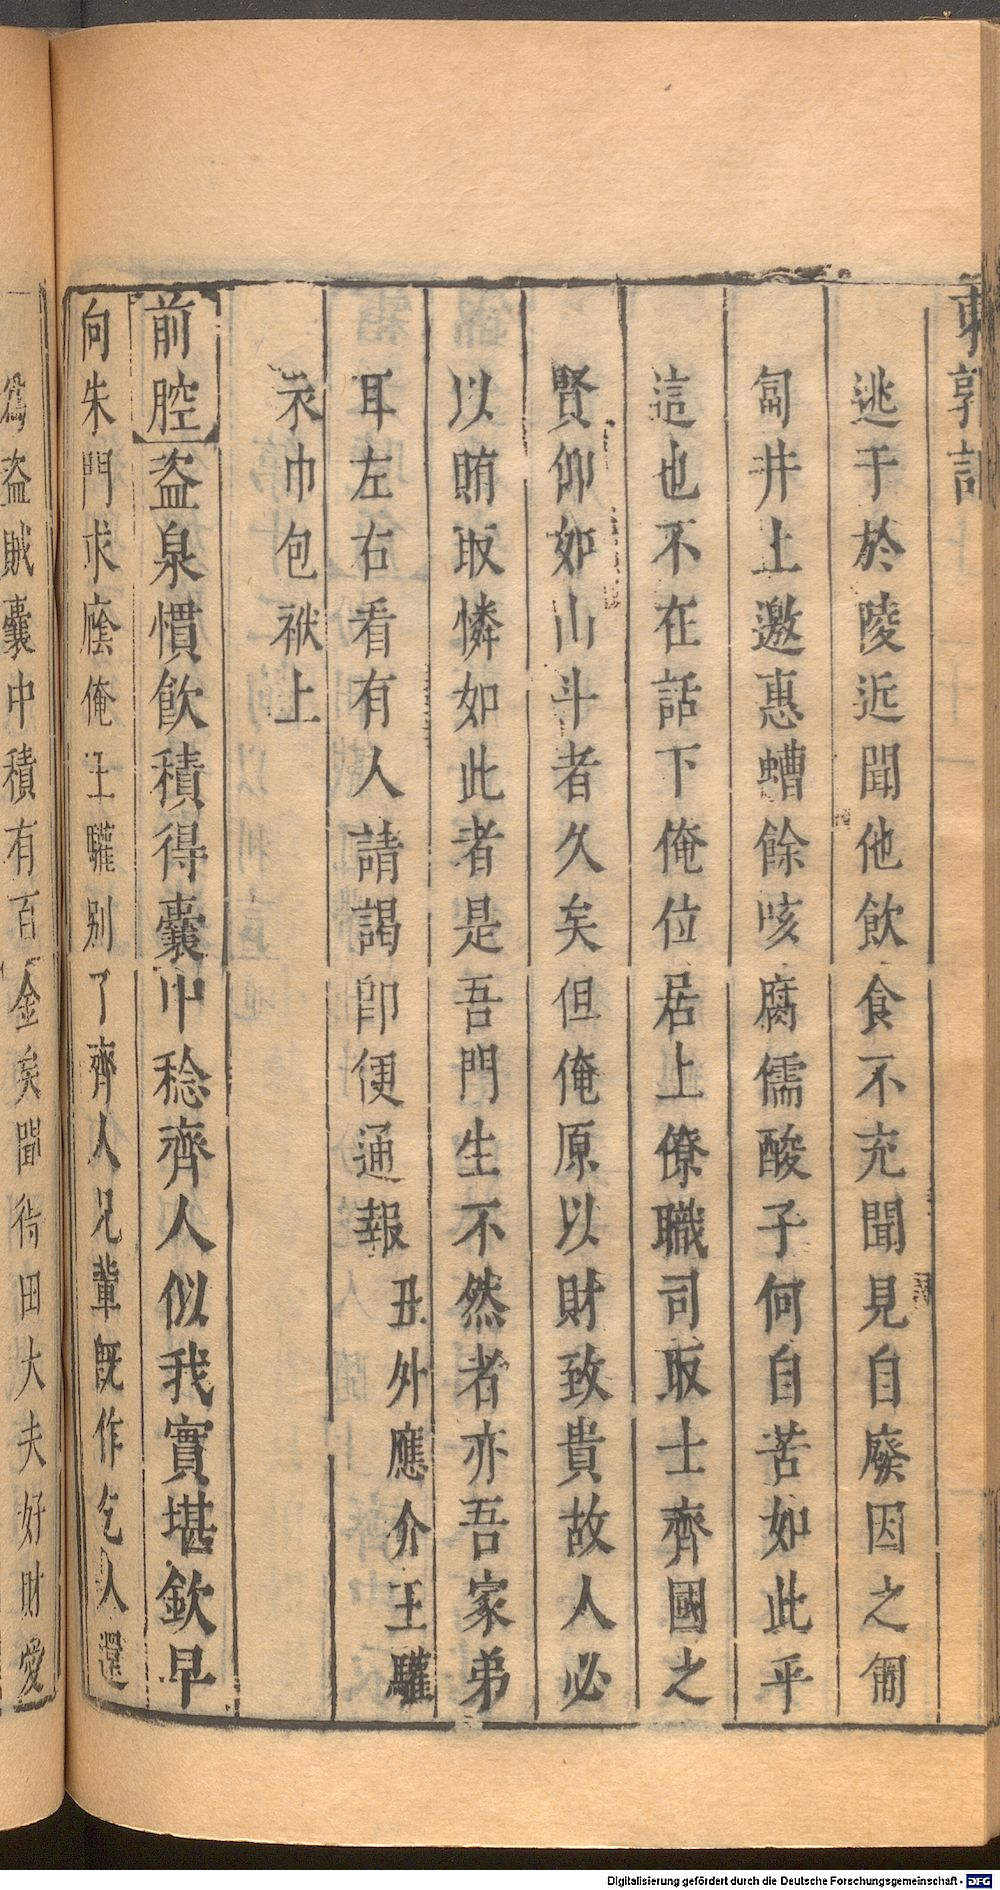 東郭記
逃于於陵近聞他飲食不充聞見自廢因之匍
匐井上邀惠螬餘咳腐儒酸子何自苦如此乎
這也不在話下俺位居上僚職司取士齊國之
賢仰如山斗者久矣但俺原以財致貴故人必
以賄取憐如此者是吾門生不然者亦吾家弟
耳左右看有人請謁卽便通報丑外應介王驩
衣巾包袱上
前腔盜泉慣飲積得囊中稔齊人似我實堪欽早
向朱門求廕俺王驩別了齊人兄輩旣作乞人還
爲盜賊囊中積有百金矣聞得田大夫好財愛
Digitalisierung gefördert durch die Deutsche Forschungsgemeinschaft - DFG